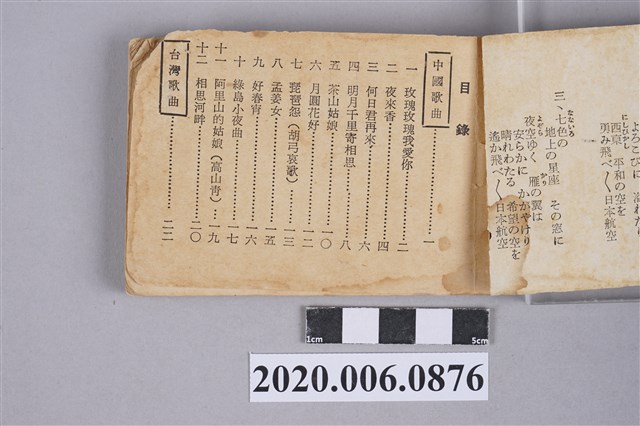 よろこびに
西東 平和の空を
勇み飛べ〱日本航空
三、七色の
地上の星座 その窓に
夜空ゆく 雁の翼は
安らかに かがやけり
晴れわたる 希望の空を
遙か飛べ〱日本航空
目錄
中國歌曲……一
一 玫瑰玫瑰我愛你……二
二 夜來香……四
三 何日君再來……六
四 明月千里寄相思……八
五 茶山姑娘……一〇
六 月圓花好……一二
七 琵琶怨(胡弓哀歌)……一三
八 孟姜女……一五
九 好春宵……一六
十 綠島小夜曲……一七
十一 阿里山的姑娘(高山青)……一九
十二 相思河畔……二〇
台灣歌曲……二二
1cm 5cm
2020.006.0876